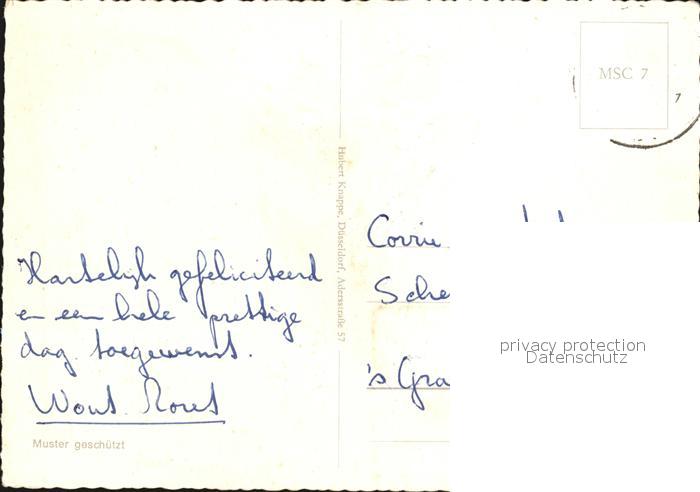 MSC 7
7
Hubert Knappe, Düsseldorf, Adersstraße 57
Hartelijk gefeliciteerd
en een hele prettige
dag toegewenst.
Wout
Muster geschützt
Corrie
Sche
's Gra
privacy protection
Datenschutz